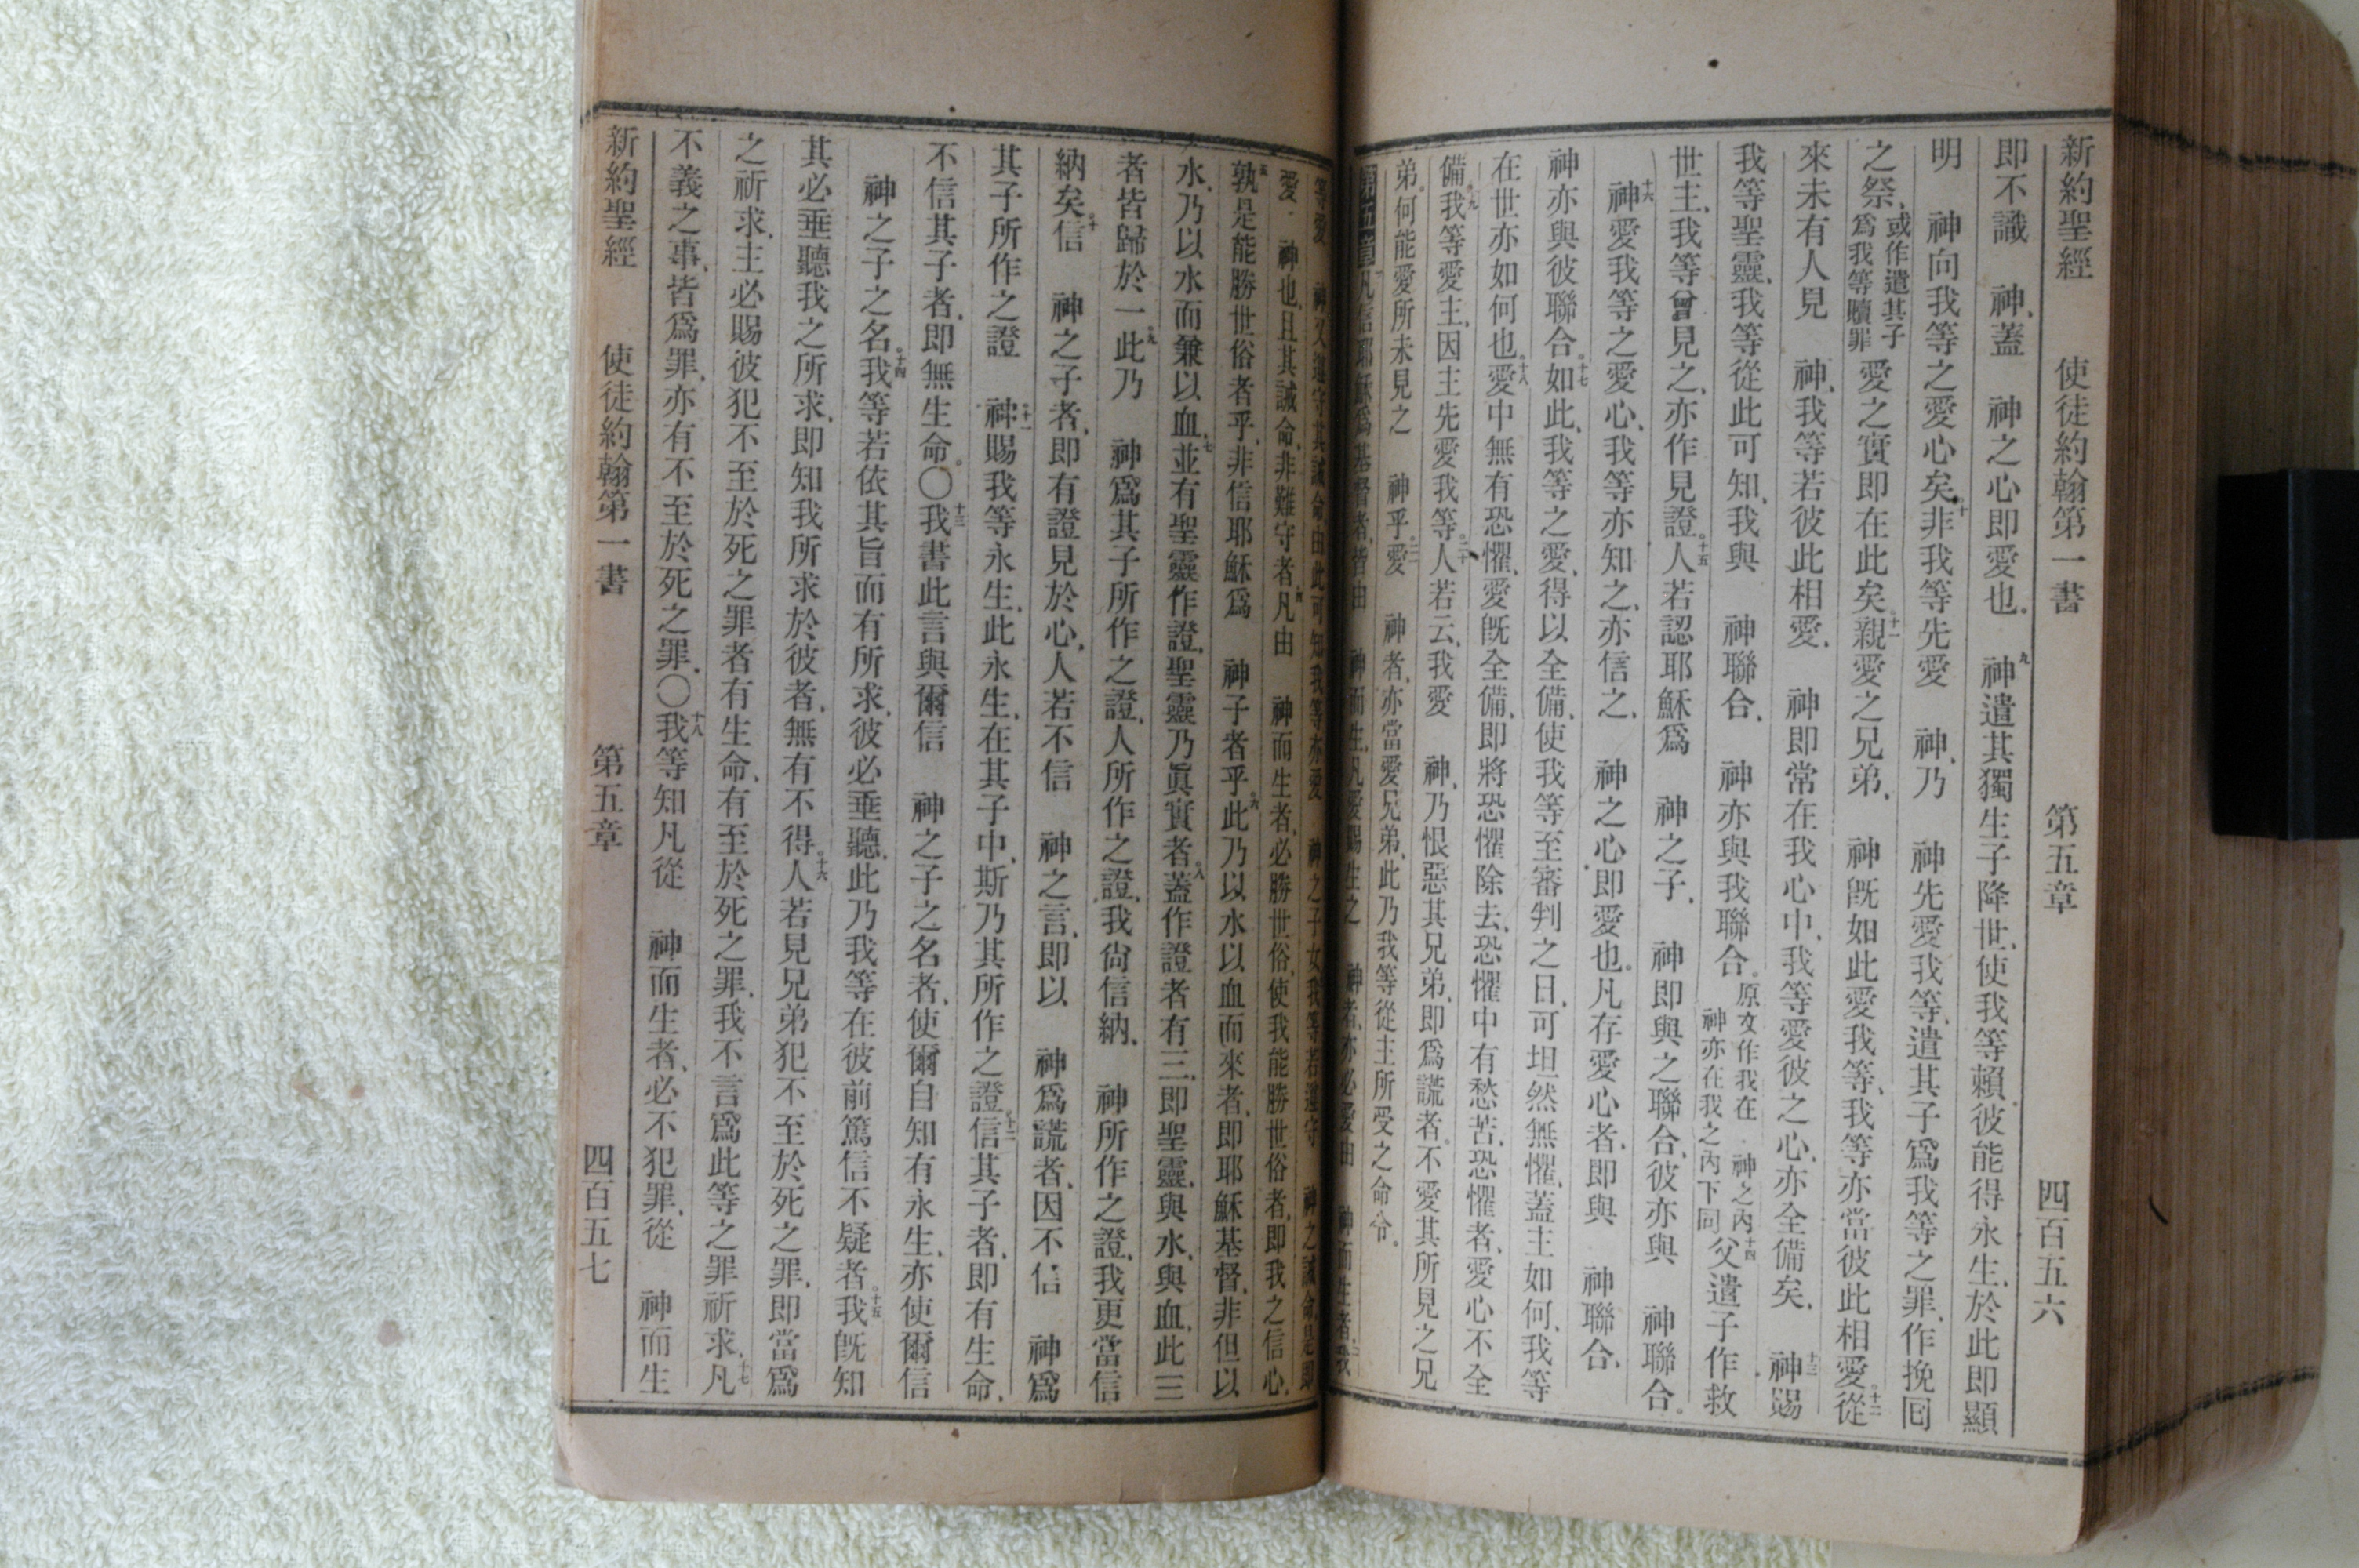 新約聖經 使徒約翰第一書 第五章 四百五六
即不識 神、蓋 神之心即愛也。九 神遣其獨生子降世、使我等賴彼能得永生、於此即顯
明 神向我等之愛心矣。十非我等先愛 神、乃 神先愛我等、遣其子爲我等之罪、作挽回
之祭、或作遣其子爲我等贖罪 愛之實即在此矣。十一親愛之兄弟、 神旣如此愛我等、我等亦當彼此相愛。十二從
來未有人見 神、我等若彼此相愛、 神即常在我心中、我等愛彼之心、亦全備矣、十三 神賜
我等聖靈、我等從此可知、我與 神聯合、 神亦與我聯合。原文作我在 神之內 神亦在我之內下同 十四父遣子作救
世主、我等曾見之、亦作見證。十五人若認耶穌爲 神之子、 神即與之聯合、彼亦與 神聯合。
十六 神愛我等之愛心、我等亦知之、亦信之、 神之心、即愛也。凡存愛心者、即與 神聯合、
神亦與彼聯合。十七如此、我等之愛、得以全備、使我等至審判之日、可坦然無懼、蓋主如何、我等
在世亦如何也。十八愛中無有恐懼、愛旣全備、即將恐懼除去、恐懼中有愁苦、恐懼者、愛心不全
備。十九我等愛主、因主先愛我等。二十人若云、我愛 神、乃恨惡其兄弟、即爲謊者。不愛其所見之兄
弟。何能愛所未見之 神乎。二一愛 神者、亦當愛兄弟、此乃我等從主所受之命令。
第五章 凡信耶穌爲基督者、皆由 神而生、凡愛賜生之 神者、亦必愛由 神而生者、二我
等愛 神又遵守其誡命、由此可知我等亦愛 神之子女、我等若遵守 神之誡命、是即
愛 神也、且其誡命、非難守者。四凡由 神而生者、必勝世俗、使我能勝世俗者、即我之信心、
五孰是能勝世俗者乎、非信耶穌爲 神子者乎。六此乃以水以血而來者、即耶穌基督、非但以
水、乃以水而兼以血、七並有聖靈作證、聖靈乃眞實者。八蓋作證者有三、即聖靈、與水、與血、此三
者皆歸於一。九此乃 神爲其子所作之證、人所作之證、我尙信納、 神所作之證、我更當信
納矣。十信 神之子者、即有證見於心、人若不信 神之言、即以 神爲謊者、因不信 神爲
其子所作之證 十一神賜我等永生、此永生、在其子中、斯乃其所作之證。十二信其子者、即有生命、
不信其子者、即無生命。〇十三我書此言與爾信 神之子之名者、使爾自知有永生、亦使爾信
神之子之名。十四我等若依其旨而有所求、彼必垂聽、此乃我等在彼前篤信不疑者。十五我旣知
其必垂聽我之所求、即知我所求於彼者、無有不得。十六人若見兄弟犯不至於死之罪、即當爲
之祈求、主必賜彼犯不至於死之罪者有生命、有至於死之罪、我不言爲此等之罪祈求、十七凡
不義之事、皆爲罪、亦有不至於死之罪、〇十八我等知凡從 神而生者、必不犯罪、從 神而生
新約聖經 使徒約翰第一書 第五章 四百五七